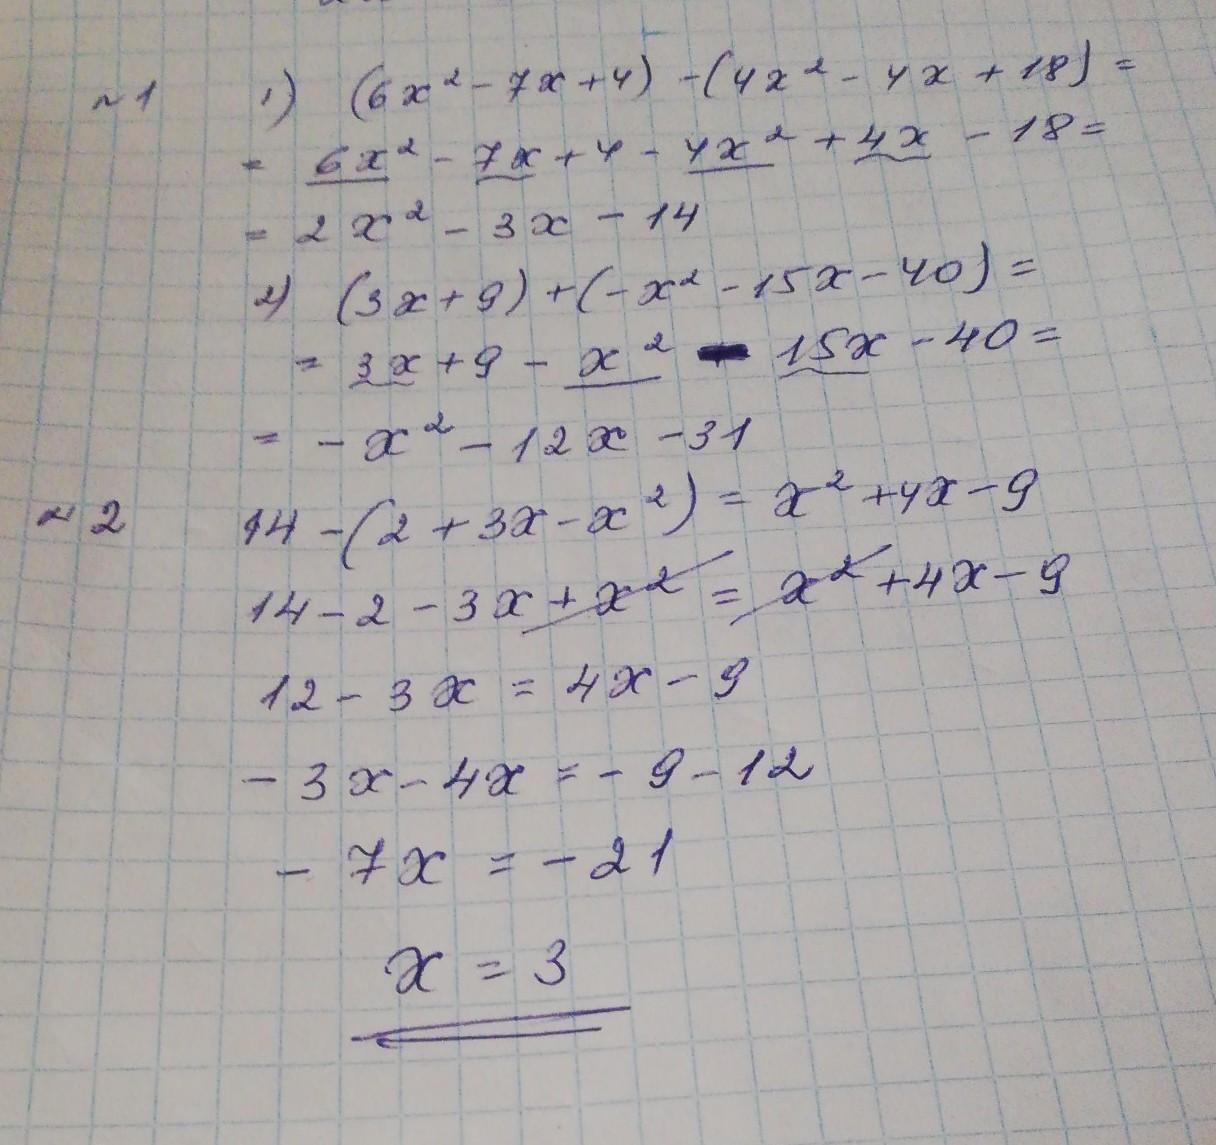 ~1 1) (6x² - 7x + 4) - (4x² - 4x + 18) =
= 6x² - 7x + 4 - 4x² + 4x - 18 =
= 2x² - 3x - 14
2) (3x + 9) + (-x² - 15x - 40) =
= 3x + 9 - x² - 15x - 40 =
= -x² - 12x - 31
~2 14 - (2 + 3x - x²) = x² + 4x - 9
14 - 2 - 3x + x² = x² + 4x - 9
12 - 3x = 4x - 9
-3x - 4x = -9 - 12
-7x = -21
x = 3